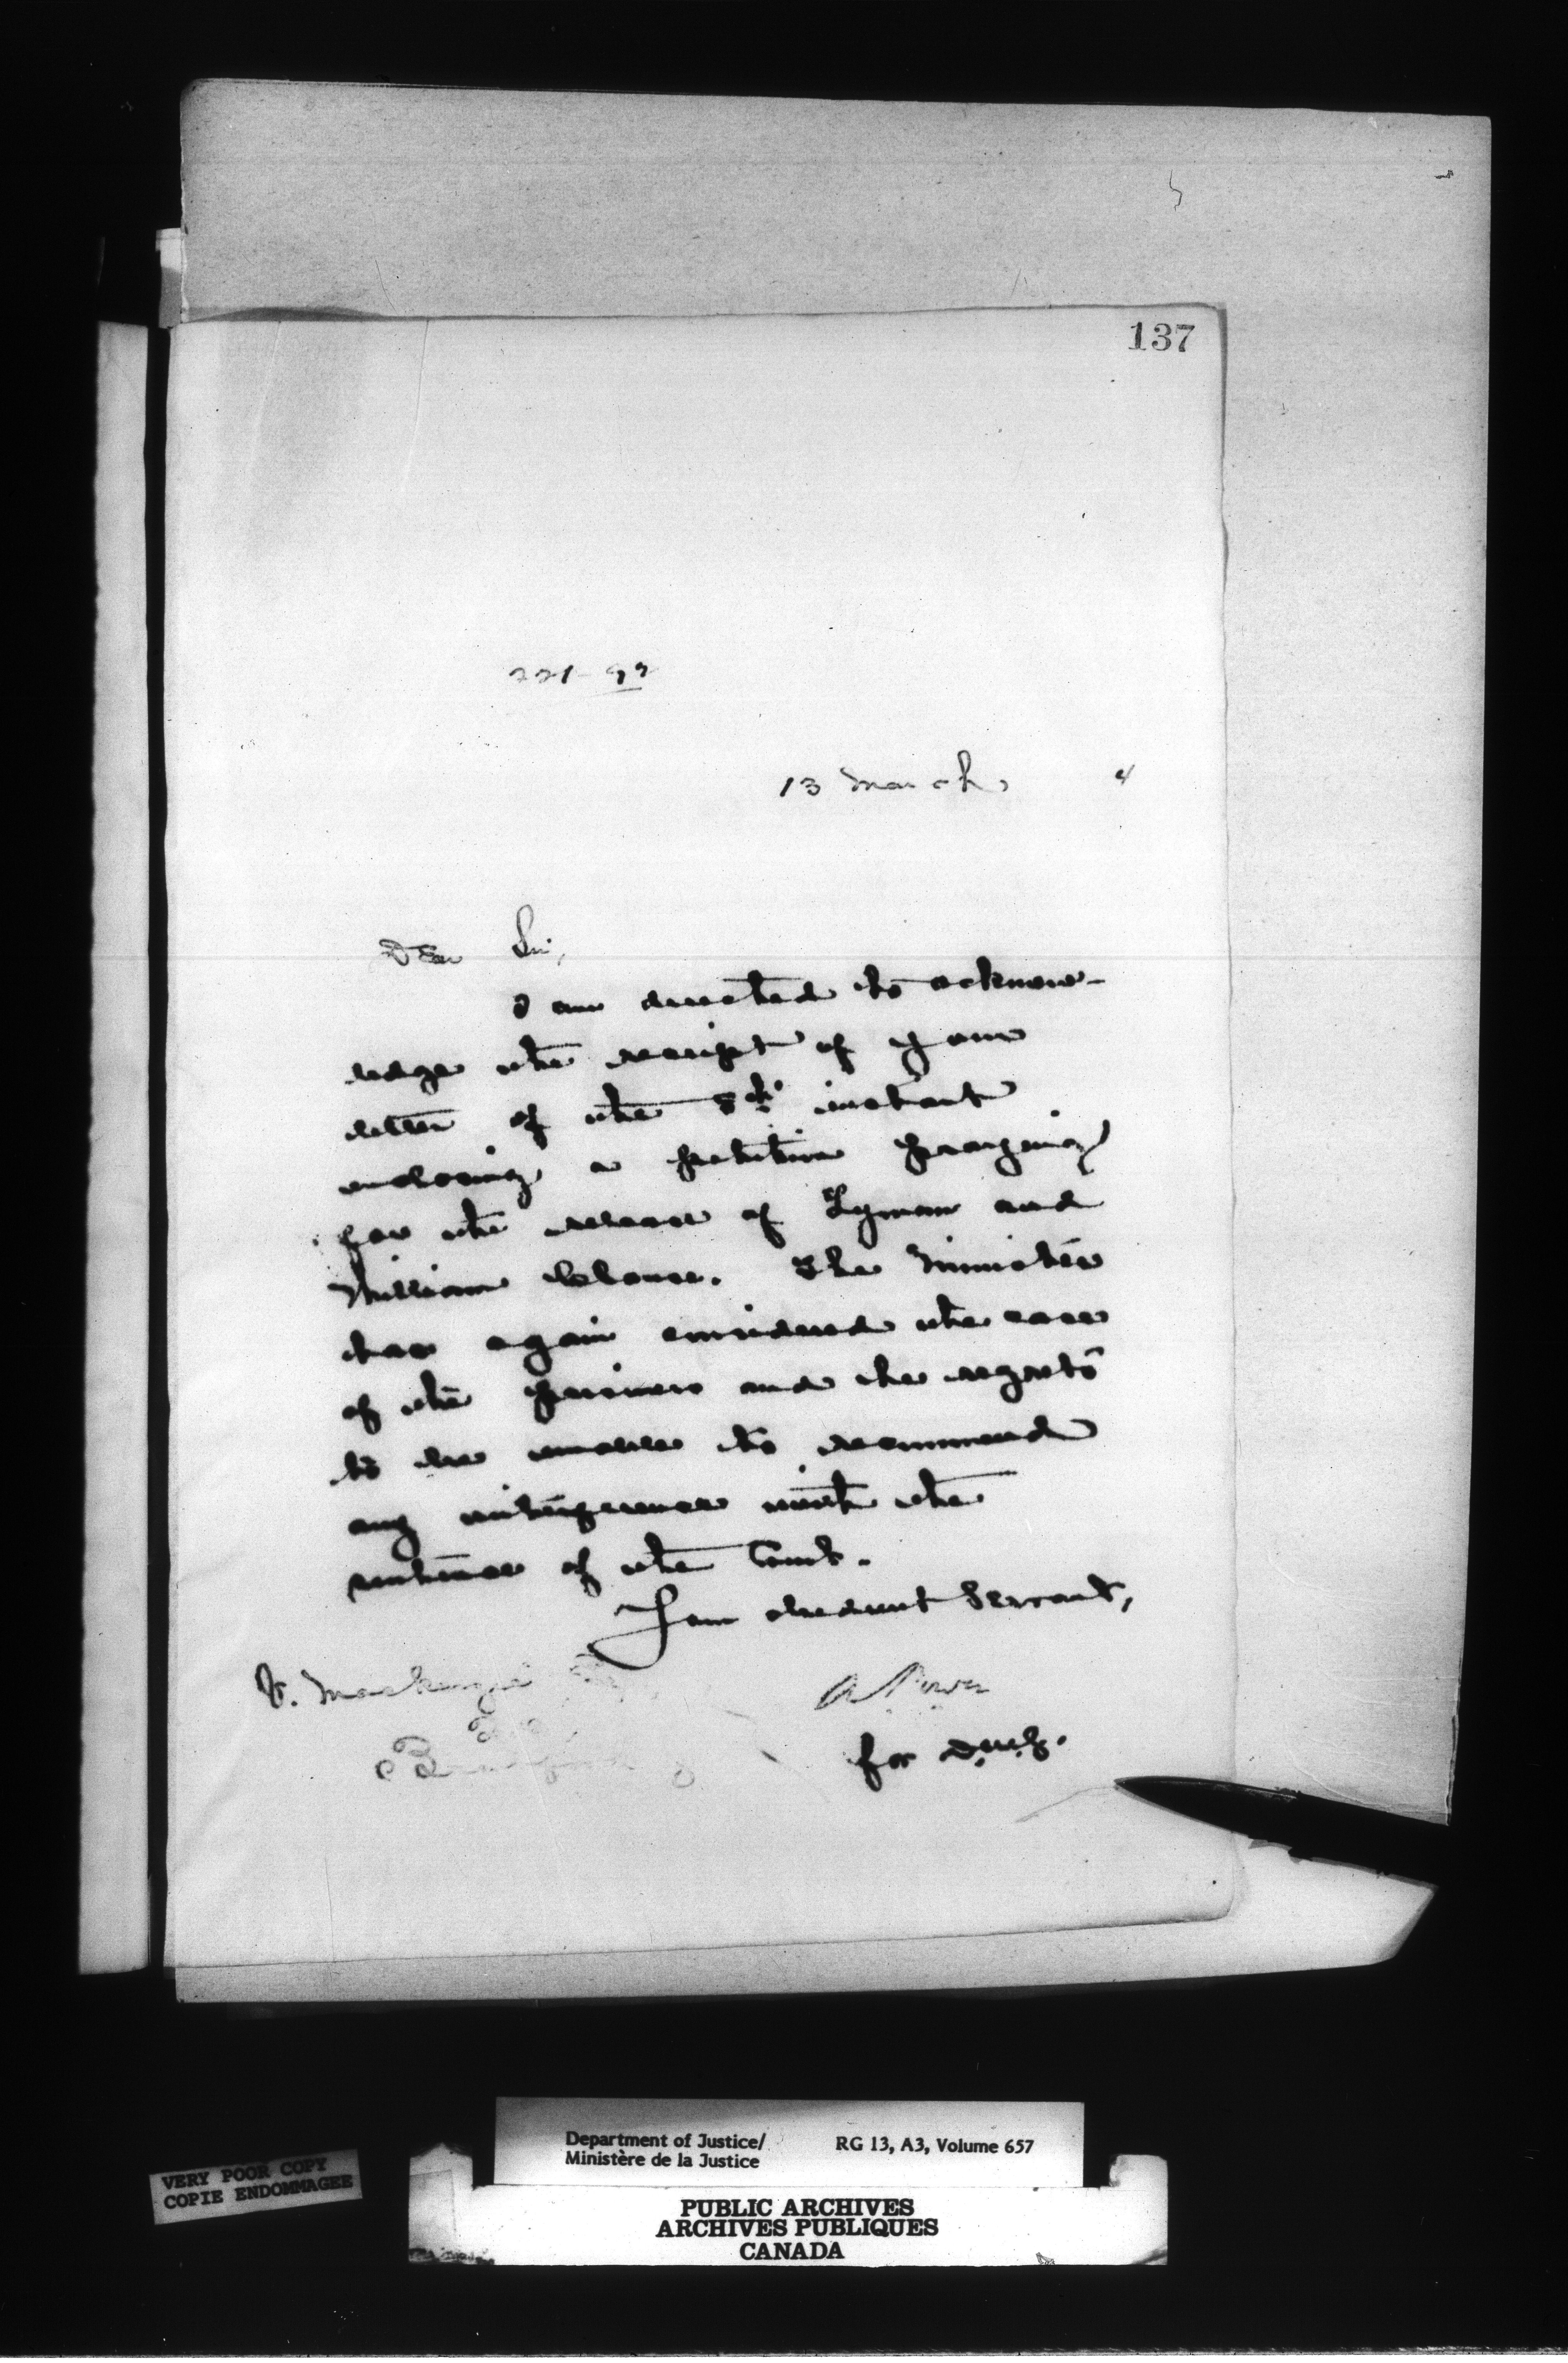 137
221-93
13 March, 4
Dear Sir,
I am directed to acknow-
ledge the receipt of your
letter of the 8th instant
enclosing a petition praying
for the release of Lyman and
William The Minister
has again considered the case
of the prisoners and he regrets
to be unable to recommend
any interference with the
sentence of the Court.
Your obedient Servant,
Mackenzie
A Power
for D.M.J.
Department of Justice/ RG 13, A3, Volume 657
Ministère de la Justice
VERY POOR COPY
COPIE ENDOMMAGEE
PUBLIC ARCHIVES
ARCHIVES PUBLIQUES
CANADA